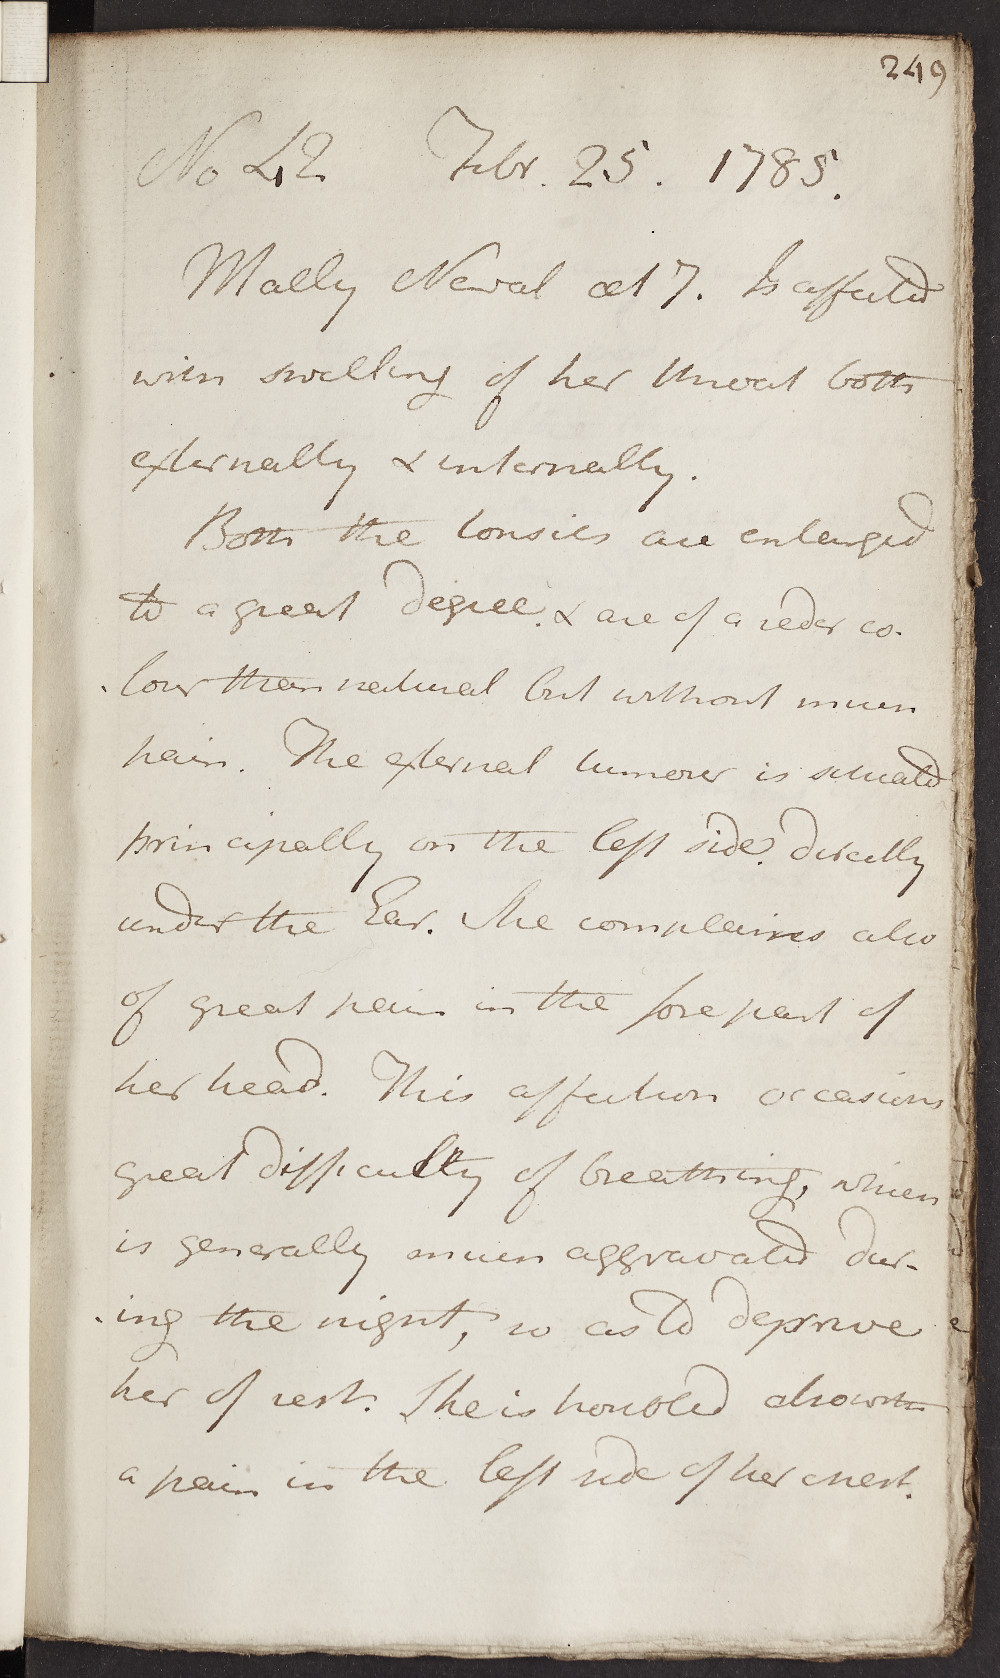 249
No 42 Febr. 25. 1785.
Mally Newal æt 7. Is affected
with swelling of her throat both
externally & internally.
Both the tonsils are enlarged
to a great degree. & are of a reder co-
lour than natural but without much
pain. The external tumour is situated
principally on the left side. directly
under the Ear. She complaines also
of great pain in the fore part of
her head. This affection occasions
great difficulty of breathing, which
is generally much aggravated dur-
ing the night, so as to deprive
her of rest. She is troubled also with
a pain in the left side of her chest.